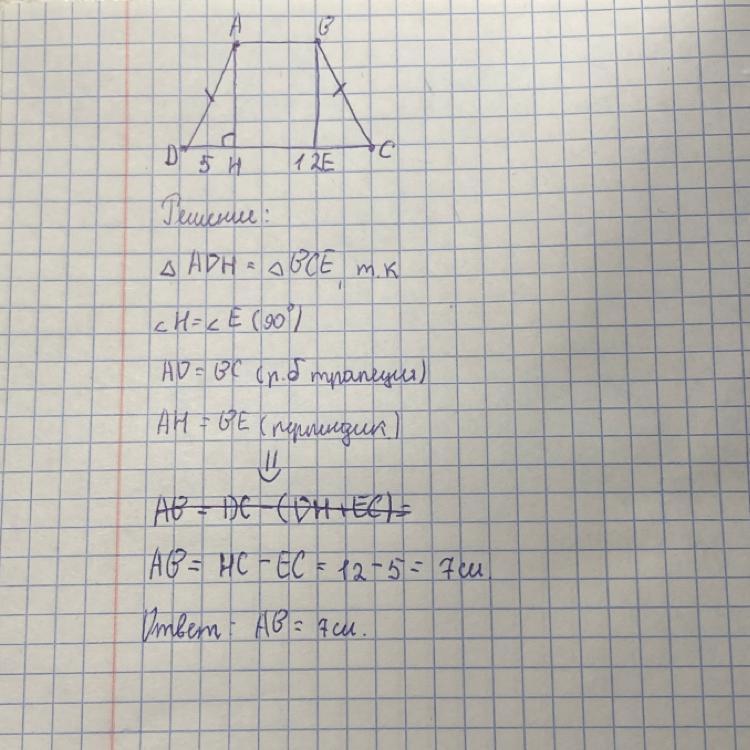 A B
D 5 H 12 E C
Решение:
△ ADH = △ BCE, т.к
∠H = ∠E (90°)
AD = BC (р.б трапеция)
AH = BE (перпендик)
⇓
AB = DC - (DH + EC) =
AB = HC - EC = 12 - 5 = 7см.
Ответ: AB = 7см.